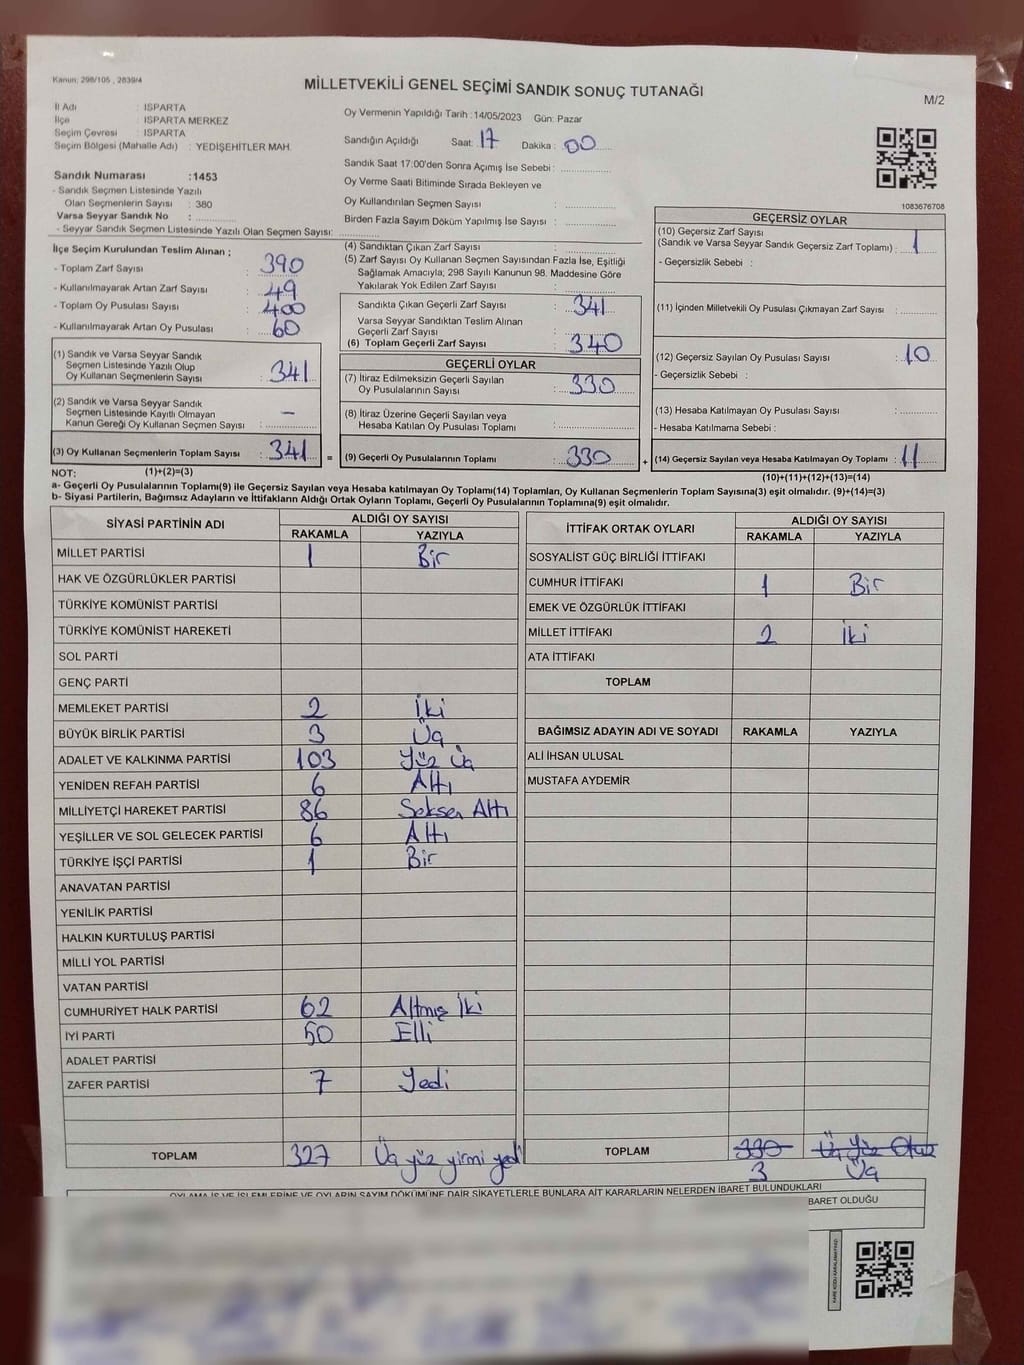 Kanun: 298/105 , 2839/4
MİLLETVEKİLİ GENEL SEÇİMİ SANDIK SONUÇ TUTANAĞI
M/2
İl Adı : ISPARTA
İlçe : ISPARTA MERKEZ
Seçim Çevresi : ISPARTA
Seçim Bölgesi (Mahalle Adı) : YEDİŞEHİTLER MAH.
Sandık Numarası :1453
- Sandık Seçmen Listesinde Yazılı
Olan Seçmenlerin Sayısı : 380
Varsa Seyyar Sandık No :
- Seyyar Sandık Seçmen Listesinde Yazılı Olan Seçmen Sayısı:
Oy Vermenin Yapıldığı Tarih :14/05/2023 Gün: Pazar
Sandığın Açıldığı Saat: 17 Dakika : 00
Sandık Saat 17:00'den Sonra Açımış İse Sebebi :
Oy Verme Saati Bitiminde Sırada Bekleyen ve
Oy Kullandırılan Seçmen Sayısı :
Birden Fazla Sayım Döküm Yapılmış İse Sayısı :
1083676708
İlçe Seçim Kurulundan Teslim Alınan ;
- Toplam Zarf Sayısı : 390
- Kullanılmayarak Artan Zarf Sayısı : 49
- Toplam Oy Pusulası Sayısı : 400
- Kullanılmayarak Artan Oy Pusulası : 60
(1) Sandık ve Varsa Seyyar Sandık
Seçmen Listesinde Yazılı Olup
Oy Kullanan Seçmenlerin Sayısı : 341
(2) Sandık ve Varsa Seyyar Sandık
Seçmen Listesinde Kayıtlı Olmayan
Kanun Gereği Oy Kullanan Seçmen Sayısı : -
(3) Oy Kullanan Seçmenlerin Toplam Sayısı : 341 =
(4) Sandıktan Çıkan Zarf Sayısı :
(5) Zarf Sayısı Oy Kullanan Seçmen Sayısından Fazla İse, Eşitliği
Sağlamak Amacıyla; 298 Sayılı Kanunun 98. Maddesine Göre
Yakılarak Yok Edilen Zarf Sayısı :
Sandıkta Çıkan Geçerli Zarf Sayısı : 341
Varsa Seyyar Sandıktan Teslim Alınan
Geçerli Zarf Sayısı :
(6) Toplam Geçerli Zarf Sayısı : 340
GEÇERLİ OYLAR
(7) İtiraz Edilmeksizin Geçerli Sayılan
Oy Pusulalarının Sayısı : 330
(8) İtiraz Üzerine Geçerli Sayılan veya
Hesaba Katılan Oy Pusulası Toplamı :
(9) Geçerli Oy Pusulalarının Toplamı : 330 +
GEÇERSİZ OYLAR
(10) Geçersiz Zarf Sayısı
(Sandık ve Varsa Seyyar Sandık Geçersiz Zarf Toplamı) : 1
- Geçersizlik Sebebi :
(11) İçinden Milletvekili Oy Pusulası Çıkmayan Zarf Sayısı :
(12) Geçersiz Sayılan Oy Pusulası Sayısı : 10
- Geçersizlik Sebebi :
(13) Hesaba Katılmayan Oy Pusulası Sayısı :
- Hesaba Katılmama Sebebi :
(14) Geçersiz Sayılan veya Hesaba Katılmayan Oy Toplamı : 11
NOT: (1)+(2)=(3) (10)+(11)+(12)+(13)=(14)
a- Geçerli Oy Pusulalarının Toplamı(9) ile Geçersiz Sayılan veya Hesaba katılmayan Oy Toplamı(14) Toplamları, Oy Kullanan Seçmenlerin Toplam Sayısına(3) eşit olmalıdır. (9)+(14)=(3)
b- Siyasi Partilerin, Bağımsız Adayların ve İttifakların Aldığı Ortak Oyların Toplamı, Geçerli Oy Pusulalarının Toplamına(9) eşit olmalıdır.
SİYASİ PARTİNİN ADI ALDIĞI OY SAYISI
RAKAMLA YAZIYLA
MİLLET PARTİSİ 1 Bir
HAK VE ÖZGÜRLÜKLER PARTİSİ
TÜRKİYE KOMÜNİST PARTİSİ
TÜRKİYE KOMÜNİST HAREKETİ
SOL PARTİ
GENÇ PARTİ
MEMLEKET PARTİSİ 2 İki
BÜYÜK BİRLİK PARTİSİ 3 Üç
ADALET VE KALKINMA PARTİSİ 103 Yüz Üç
YENİDEN REFAH PARTİSİ 6 Altı
MİLLİYETÇİ HAREKET PARTİSİ 86 Seksen Altı
YEŞİLLER VE SOL GELECEK PARTİSİ 6 Altı
TÜRKİYE İŞÇİ PARTİSİ 1 Bir
ANAVATAN PARTİSİ
YENİLİK PARTİSİ
HALKIN KURTULUŞ PARTİSİ
MİLLİ YOL PARTİSİ
VATAN PARTİSİ
CUMHURİYET HALK PARTİSİ 62 Altmış İki
İYİ PARTİ 50 Elli
ADALET PARTİSİ
ZAFER PARTİSİ 7 Yedi
TOPLAM 327 Üç yüz yirmi yedi
İTTİFAK ORTAK OYLARI ALDIĞI OY SAYISI
RAKAMLA YAZIYLA
SOSYALİST GÜÇ BİRLİĞİ İTTİFAKI
CUMHUR İTTİFAKI 1 Bir
EMEK VE ÖZGÜRLÜK İTTİFAKI
MİLLET İTTİFAKI 2 İki
ATA İTTİFAKI
TOPLAM
BAĞIMSIZ ADAYIN ADI VE SOYADI RAKAMLA YAZIYLA
ALİ İHSAN ULUSAL
MUSTAFA AYDEMİR
TOPLAM 330 Üç Yüz Otuz
3 Üç
OYLAMA İŞ VE İŞLEMLERİNE VE OYLARIN SAYIM DÖKÜMÜNE DAİR ŞİKAYETLERLE BUNLARA AİT KARARLARIN NELERDEN İBARET BULUNDUKLARI
BARET OLDUĞU